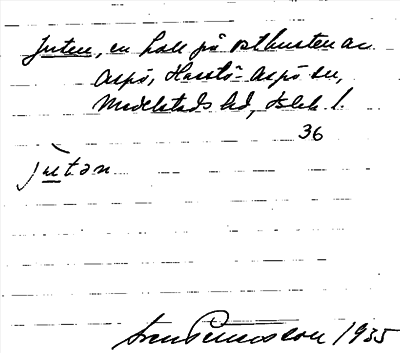 Juten, en håll på ostkusten av
Aspö, Hasslö-Aspö sn,
Medelstads hd, Blek. l.
36
jùtən
Sven Benson 1935